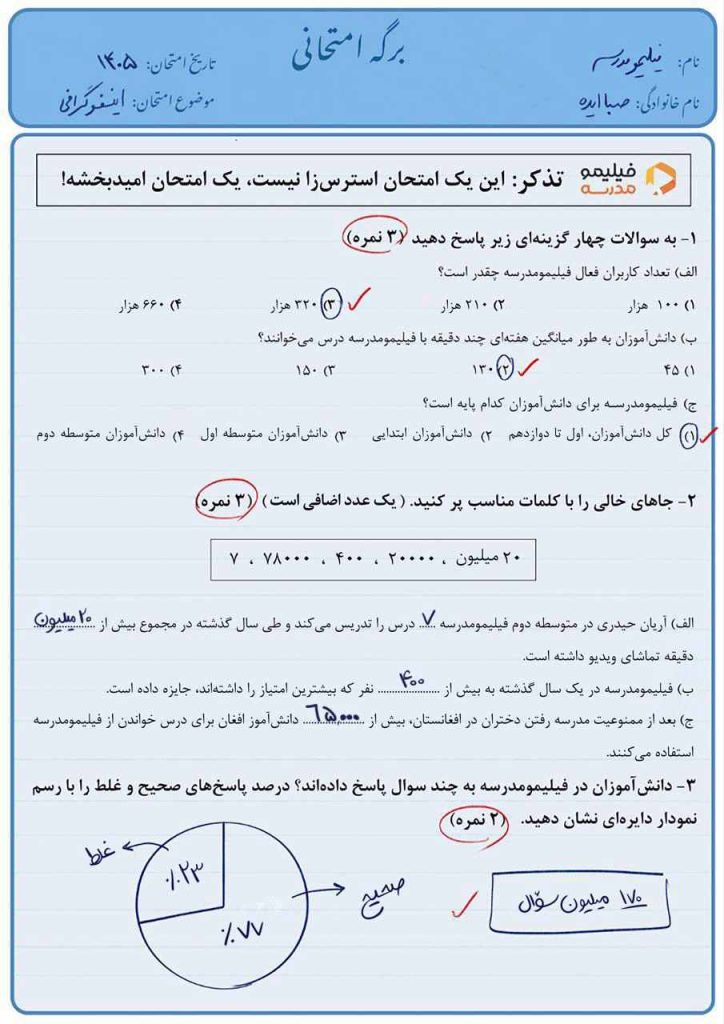 برگه امتحانی
نام: فیلیمومدرسه
تاریخ امتحان: ۱۴۰۵
نام خانوادگی: صبا ایده
موضوع امتحان: اینفوگرافی
فیلیمو مدرسه
تذکر: این یک امتحان استرس‌زا نیست، یک امتحان امیدبخشه!
۱- به سوالات چهار گزینه‌ای زیر پاسخ دهید (۳ نمره)
الف) تعداد کاربران فعال فیلیمومدرسه چقدر است؟
۱) ۱۰۰ هزار ۲) ۲۱۰ هزار ۳) ۳۲۰ هزار ۴) ۶۶۰ هزار
ب) دانش‌آموزان به طور میانگین هفته‌ای چند دقیقه با فیلیمومدرسه درس می‌خوانند؟
۱) ۴۵ ۲) ۱۳۰ ۳) ۱۵۰ ۴) ۳۰۰
ج) فیلیمومدرسه برای دانش‌آموزان کدام پایه است؟
۱) کل دانش‌آموزان، اول تا دوازدهم ۲) دانش‌آموزان ابتدایی ۳) دانش‌آموزان متوسطه اول ۴) دانش‌آموزان متوسطه دوم
۲- جاهای خالی را با کلمات مناسب پر کنید. (یک عدد اضافی است) (۳ نمره)
۲۰ میلیون ، ۲۰۰۰۰ ، ۴۰۰ ، ۷۸۰۰۰ ، ۷
الف) آریان حیدری در متوسطه دوم فیلیمومدرسه ۷ درس را تدریس می‌کند و طی سال گذشته در مجموع بیش از ۲۰ میلیون
دقیقه تماشای ویدیو داشته است.
ب) فیلیمومدرسه در یک سال گذشته به بیش از ۴۰۰ نفر که بیشترین امتیاز را داشته‌اند، جایزه داده است.
ج) بعد از ممنوعیت مدرسه رفتن دختران در افغانستان، بیش از ۶۵,۰۰۰ دانش‌آموز افغان برای درس خواندن از فیلیمومدرسه
استفاده می‌کنند.
۳- دانش‌آموزان در فیلیمومدرسه به چند سوال پاسخ داده‌اند؟ درصد پاسخ‌های صحیح و غلط را با رسم
نمودار دایره‌ای نشان دهید. (۲ نمره)
۱۷۰ میلیون سؤال
صحیح
غلط
٪۲۳
٪۷۷